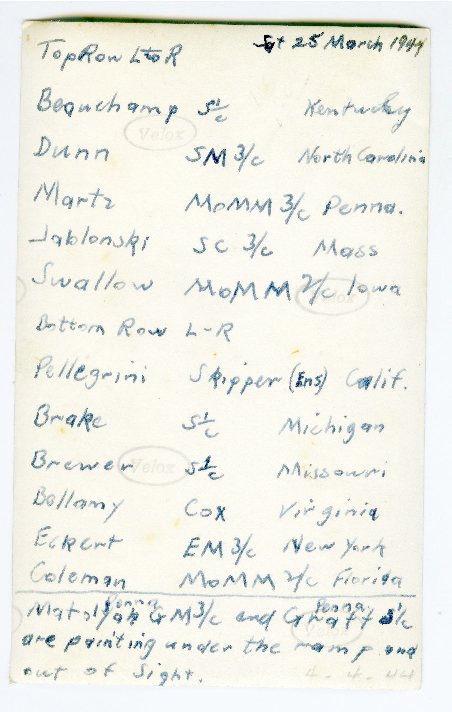 Sat 25 March 1944
Top Row L to R
Beauchamp S 1/c Kentucky
Velox
Dunn SM 3/c North Carolina
Martz MoMM 3/c Penna.
Jablonski SC 3/c Mass
Swallow MoMM 2/c Iowa
Bottom Row L-R
Pellegrini Skipper (Ens) Calif.
Brake S 1/c Michigan
Brewer S 1/c Missouri
Velox
Bellamy Cox Virginia
Eckert EM 3/c New York
Coleman MoMM 2/c Florida
Penna Penna
GM 3/c and Graff S 1/c
are painting under the ramp and
out of sight.
4-4-44